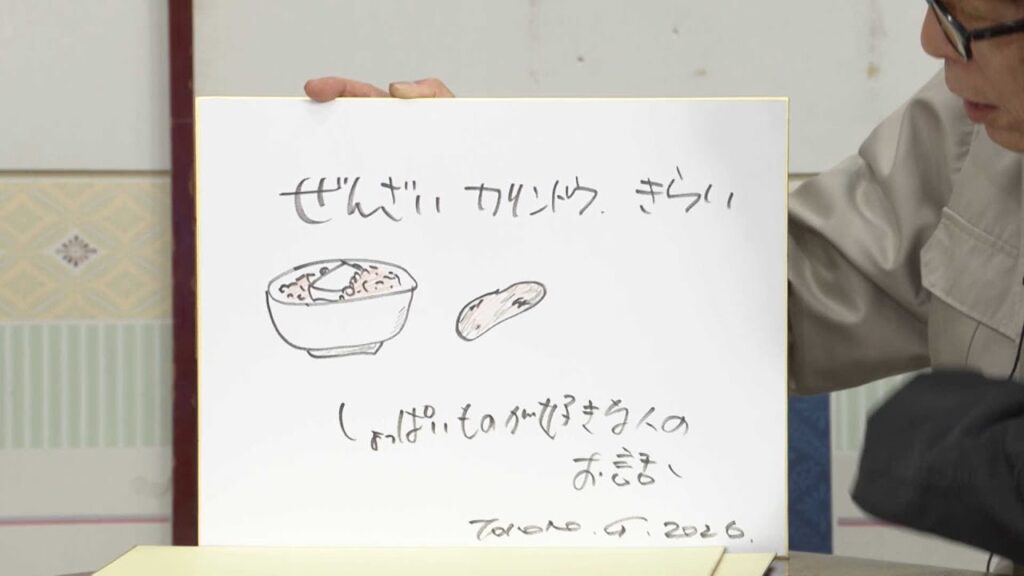 ぜんざい カリントウ. きらい
しょっぱいものが好きな人の
お話、
G. 2026.